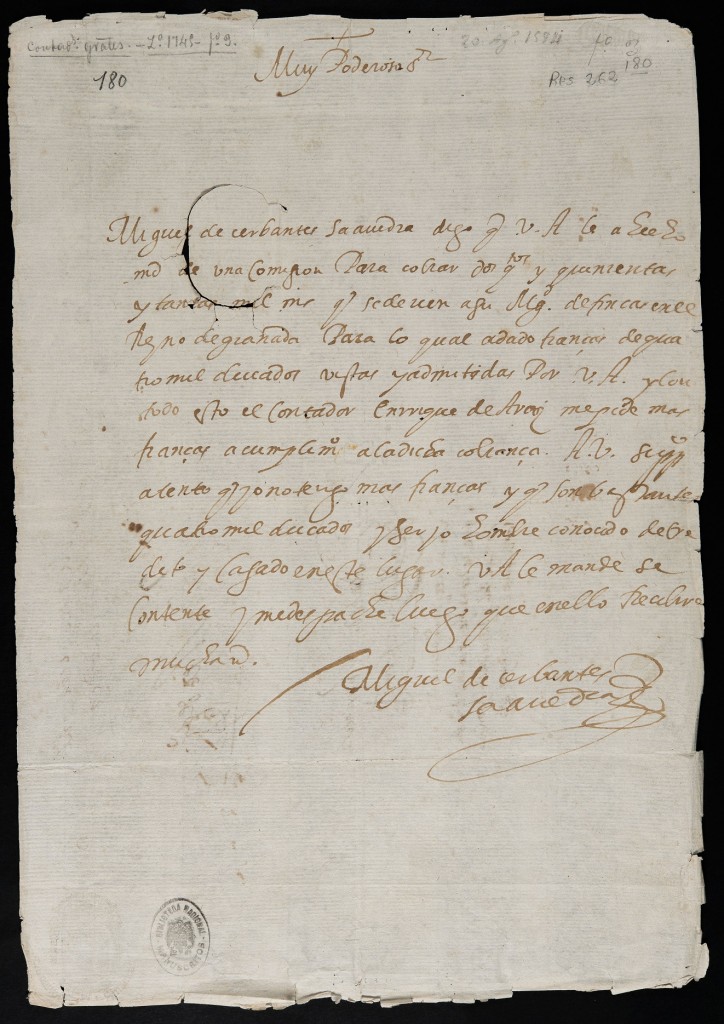 Contadª. Grales. - Lº 1745 - fº 3.
20 Agº. 1594
180
180
Res 262
Muy Poderoso Sr
Miguel de cerbantes Saavedra digo q V. A. le a Hecho
md de una Comision Para cobrar dos qtos y quinientas
y tantas mil ms q se deven a su Mg. de fincas en el
Reyno de granada Para lo qual a dado fianças de qua
tro mil ducados vistas y admitidas Por V. A. y con
todo esto el Contador Enrrique de Araiz me pide mas
fianças a cumplimº a la dicha cobrança. A V. A. suppco
atento q yo no tengo mas fianças y q son bastante
quatro mil ducados y ser yo hombre conocido de cre
dito y Casado en este lugar. V A le mande se
Contente y me despache luego que en ello Recibire
mucha md.
Miguel de cerbantes
saavedra
BIBLIOTECA NACIONAL
MANUSCRITOS